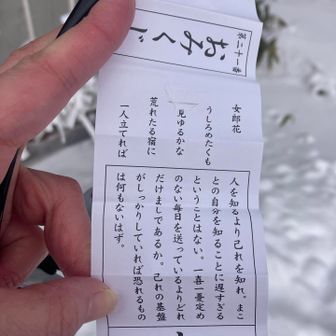 第二十一番
おみくじ
女郎花
うしろめたくも
見ゆるかな
荒れたる宿に
一人立てれば
人を知るより己れを知れ。まこ
との自分を知ることに遅すぎる
ということはない。一喜一憂定め
のない毎日を送っているよりどれ
だけましであるか。己れの基盤
がしっかりしていれば恐れるもの
は何もないはず。